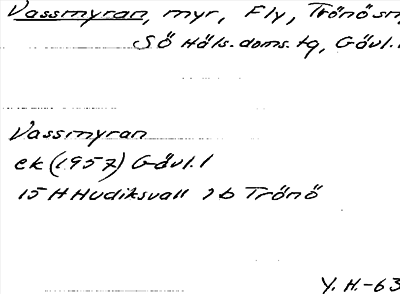 Vassmyran, myr, Fly, Trönö sn,
Sö Häls. doms. tg, Gävl. l
Vassmyran
ek (1957) Gävl. l
15 H Hudiksvall 2 b Trönö
Y. H. -63